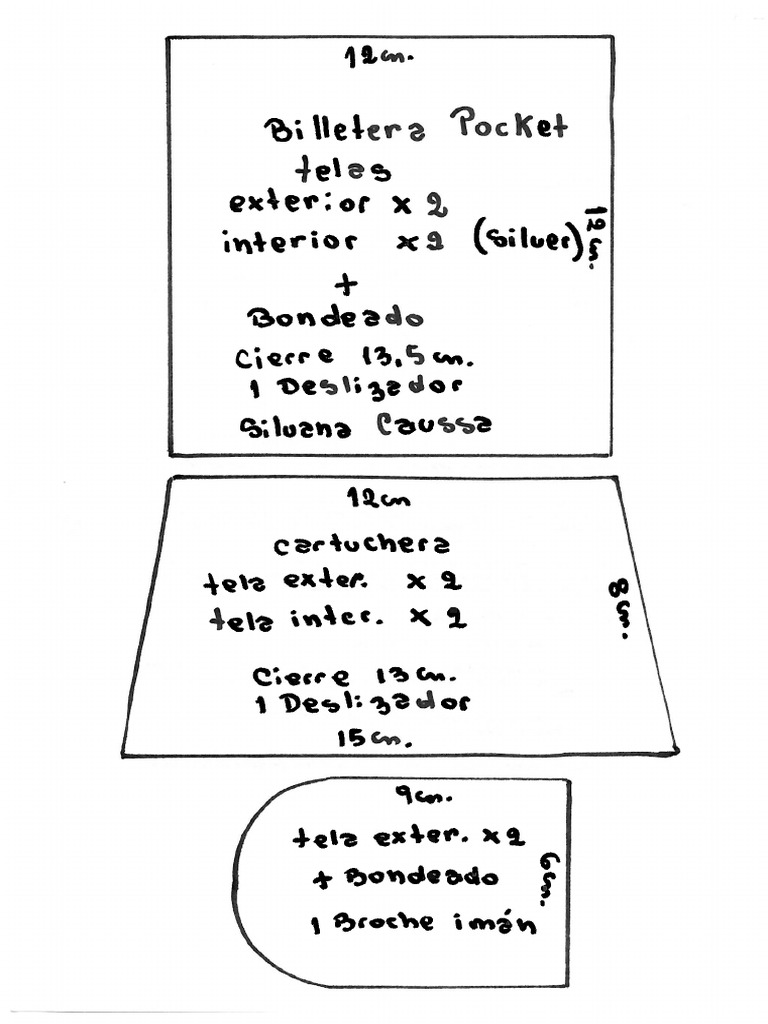 12cm.
Billetera Pocket
telas
exterior x 2
interior x2 (Silver)
12cm.
+
Bondeado
Cierre 13,5cm.
1 Deslizador
Silvana Caussa
12cm
Cartuchera
tela exter. x 2
tela inter. x 2
8cm.
Cierre 13cm.
1 Deslizador
15cm.
9cm.
tela exter. x2
+ Bondeado
6cm.
1 Broche imán